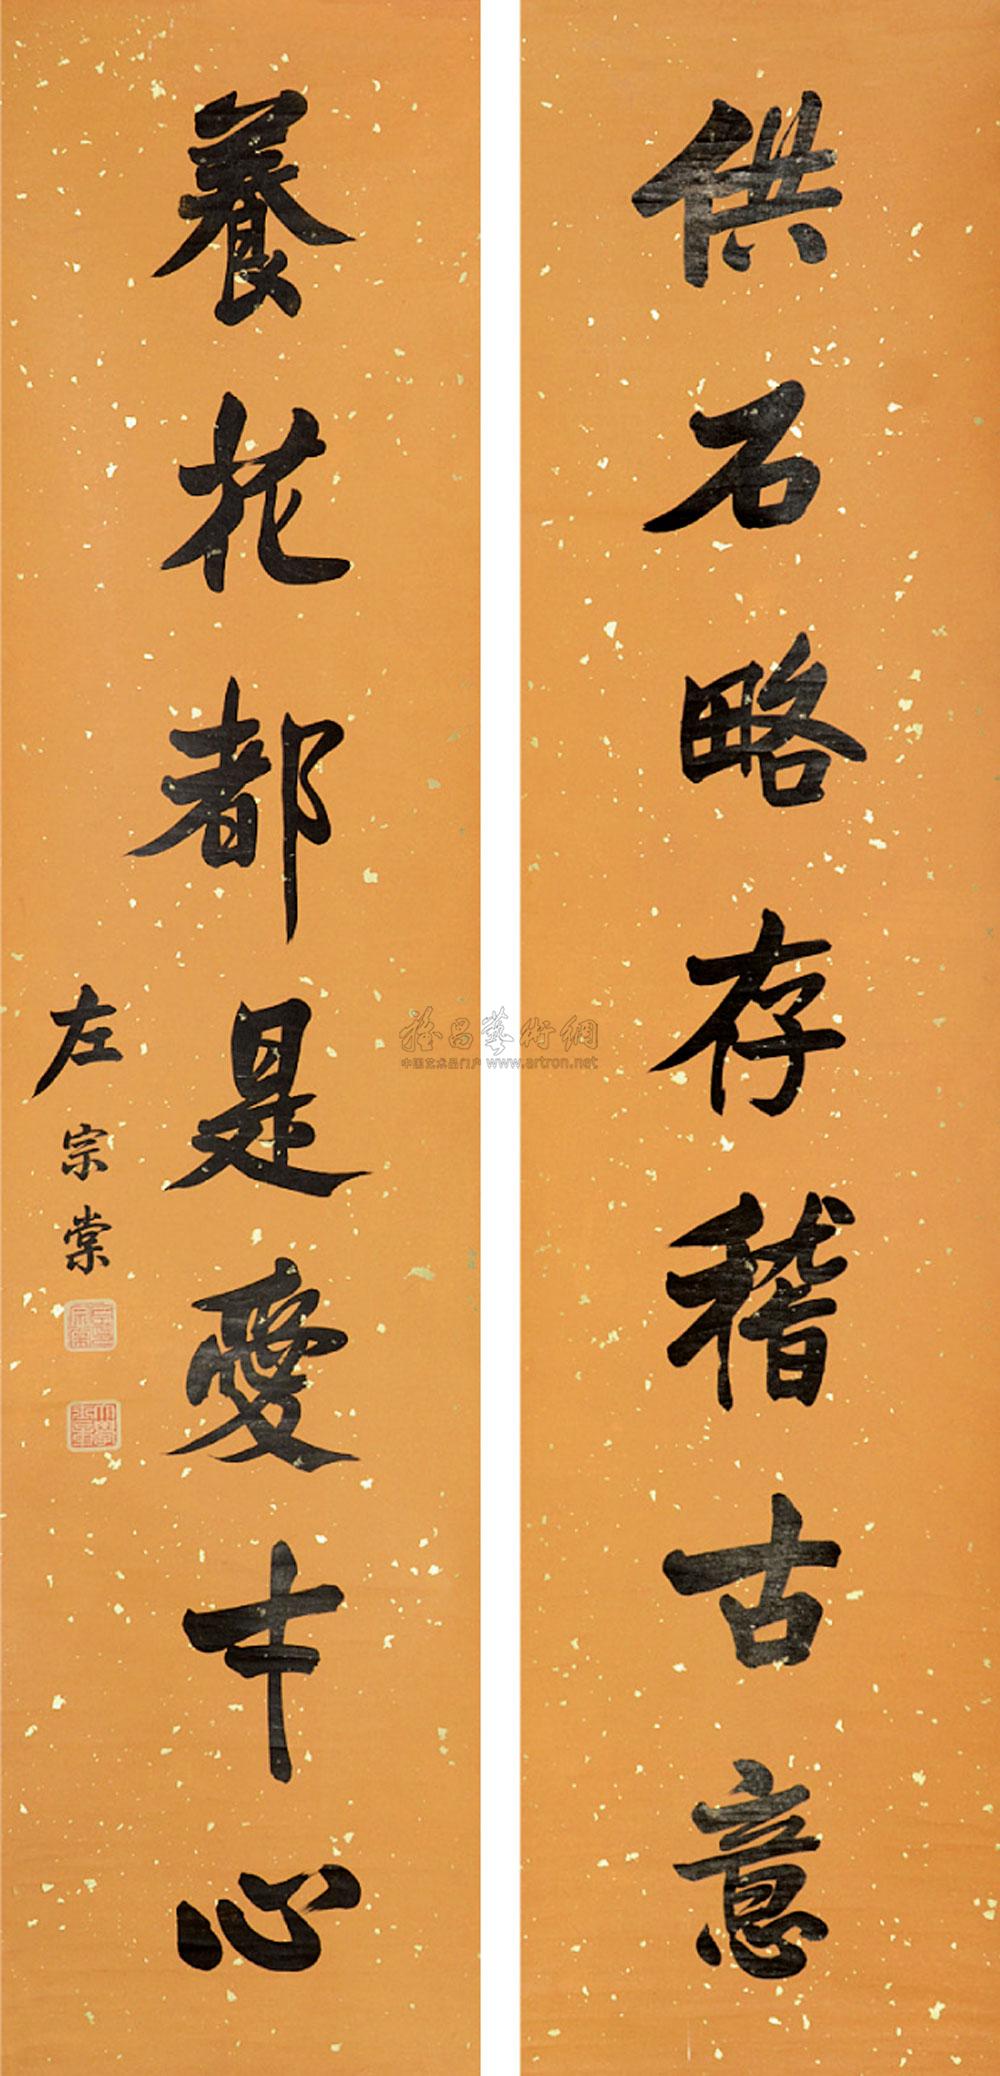 供石略存稽古意
養花都是愛才心
左宗棠
雅昌藝術網
中国艺术品门户 www.artron.net